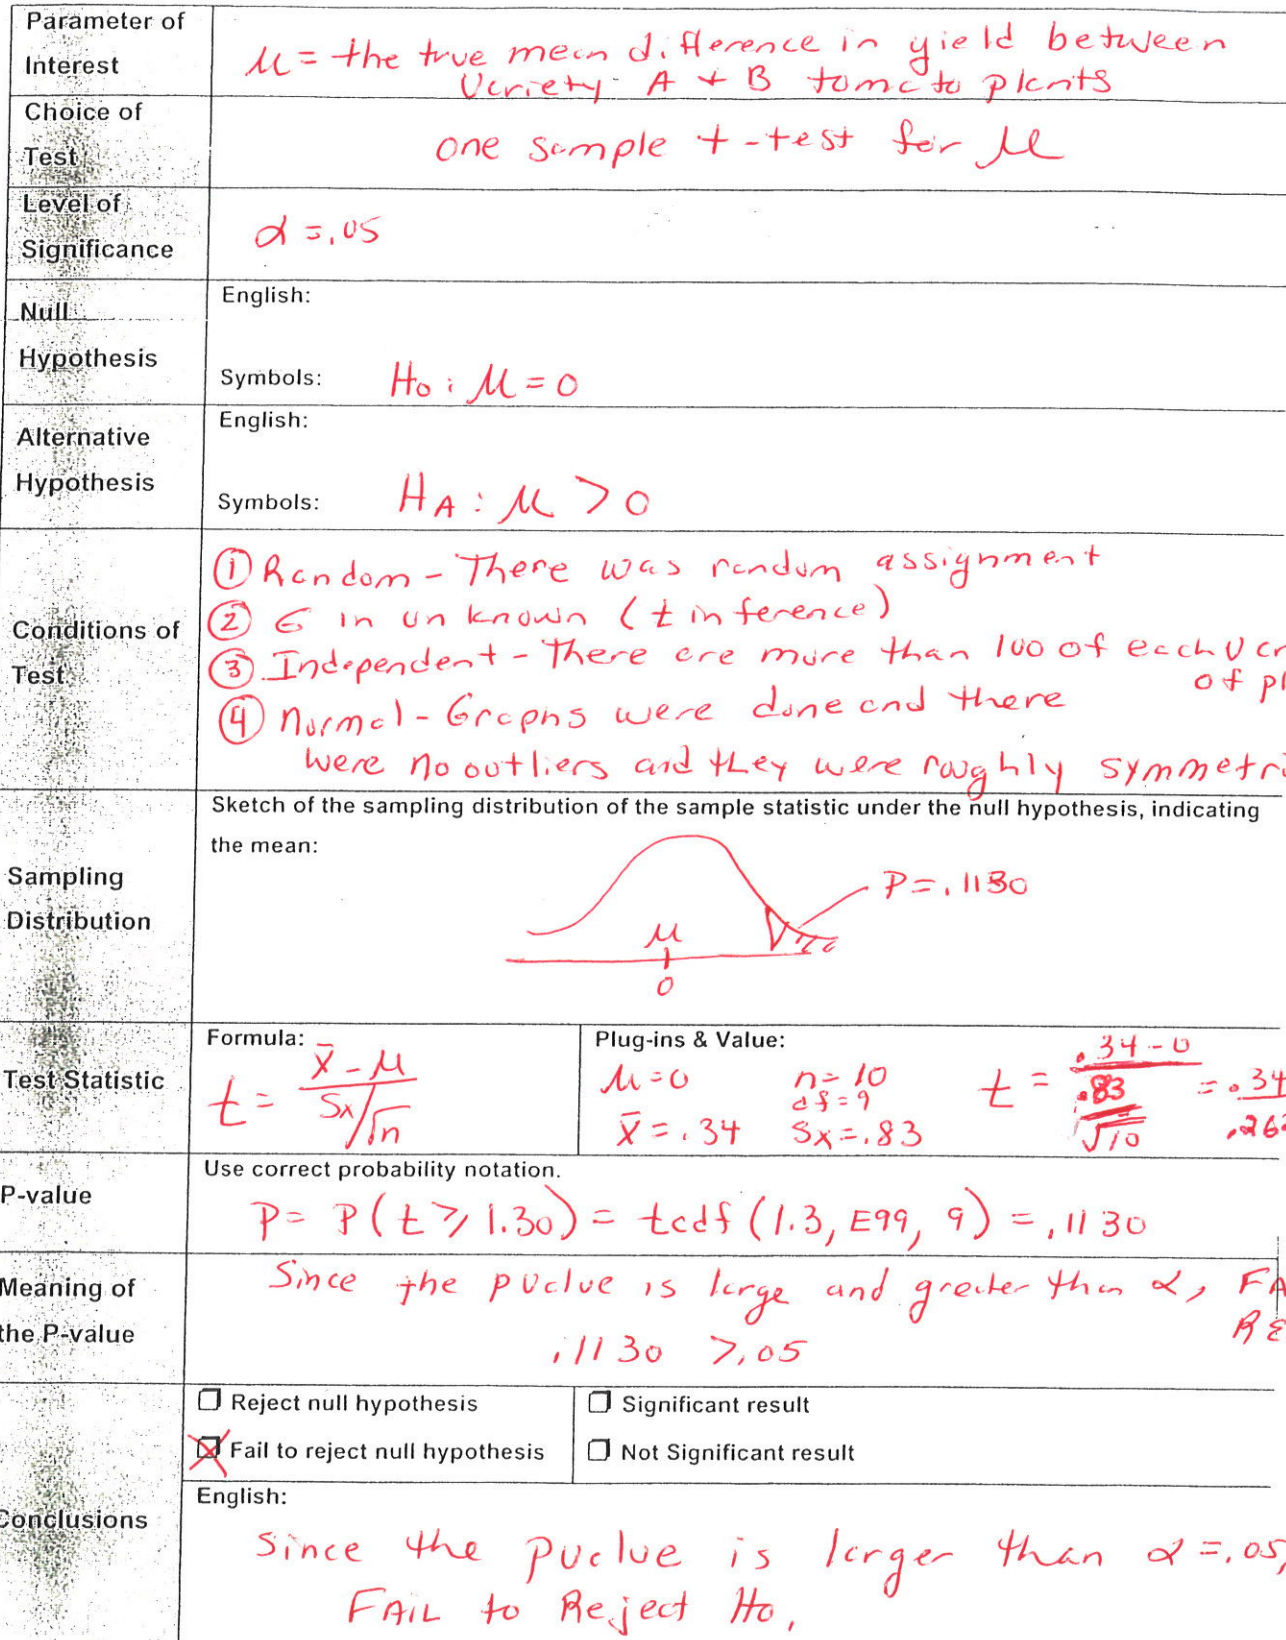 Parameter of
Interest
μ = the true mean difference in yield between
Variety A + B tomato plants
Choice of
Test
one sample t-test for μ
Level of
Significance
α = .05
Null
Hypothesis
English:
Symbols: H₀: μ = 0
Alternative
Hypothesis
English:
Symbols: H_A: μ > 0
Conditions of
Test
① Random - There was random assignment
② σ in unknown (t inference)
③ Independent - There are more than 100 of each
of
④ Normal - Graphs were done and there
were no outliers and they were roughly
Sampling
Distribution
Sketch of the sampling distribution of the sample statistic under the null hypothesis, indicating
the mean:
P = .1130
μ
0
Test Statistic
Formula:
t = (x̄ - μ) / (Sx/√n)
Plug-ins & Value:
μ = 0 n = 10
df = 9
x̄ = .34 Sx = .83
t = (.34 - 0) / (.83/√10) = .34 / .262
P-value
Use correct probability notation.
P = P(t ≥ 1.30) = tcdf(1.3, E99, 9) = .1130
Meaning of
the P-value
Since the pvalue is large and greater than α,
.1130 > .05
Conclusions
Reject null hypothesis
Fail to reject null hypothesis
Significant result
Not Significant result
English:
Since the pvalue is larger than α = .05,
FAIL to Reject H₀,